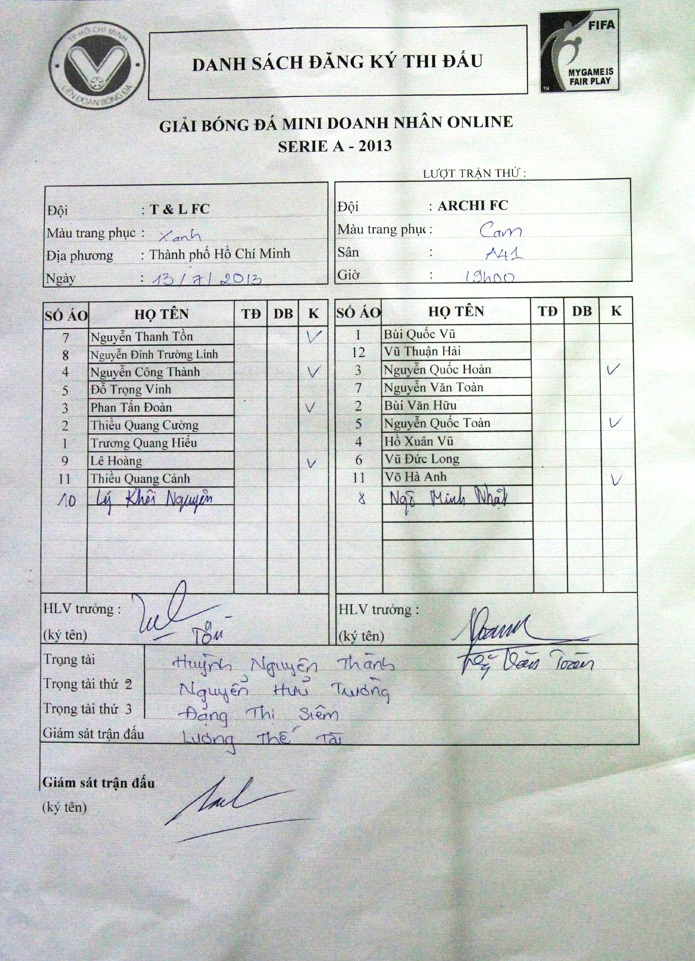 TP HỒ CHÍ MINH
LIÊN ĐOÀN BÓNG ĐÁ
DANH SÁCH ĐĂNG KÝ THI ĐẤU
FIFA
MY GAME IS
FAIR PLAY
TM
GIẢI BÓNG ĐÁ MINI DOANH NHÂN ONLINE
SERIE A - 2013
LƯỢT TRẬN THỨ :
Đội : T & L FC
Màu trang phục : Xanh
Địa phương : Thành phố Hồ Chí Minh
Ngày : 13/7/2013
Đội : ARCHI FC
Màu trang phục : Cam
Sân : A41
Giờ : 19h00
SỐ ÁO HỌ TÊN TĐ DB K
7 Nguyễn Thanh Tồn ✓
8 Nguyễn Đình Trường Linh
4 Nguyễn Công Thành ✓
5 Đỗ Trọng Vinh
3 Phan Tấn Đoàn ✓
2 Thiều Quang Cường
1 Trương Quang Hiếu
9 Lê Hoàng ✓
11 Thiều Quang Cảnh
10 Lý Khôi Nguyên
SỐ ÁO HỌ TÊN TĐ DB K
1 Bùi Quốc Vũ
12 Vũ Thuận Hải
3 Nguyễn Quốc Hoàn ✓
7 Nguyễn Văn Toàn
2 Bùi Văn Hữu
5 Nguyễn Quốc Toàn ✓
4 Hồ Xuân Vũ
6 Vũ Đức Long
11 Võ Hà Anh ✓
8 Ngô Minh Nhật
HLV trưởng :
(ký tên) Tồn
HLV trưởng :
(ký tên)
Văn Toàn
Trọng tài Huỳnh Nguyễn Thành
Trọng tài thứ 2 Nguyễn Hữu Trường
Trọng tài thứ 3 Đặng Thi Siêm
Giám sát trận đấu Lương Thế Tài
Giám sát trận đấu
(ký tên)